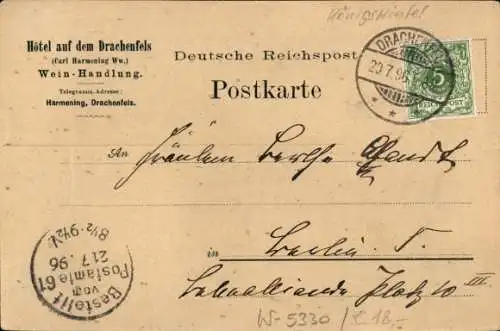 Königswinter
Hôtel auf dem Drachenfels
(Carl Harmening Ww.)
Wein-Handlung.
Telegramm-Adresse:
Harmening, Drachenfels.
Deutsche Reichspost
Postkarte
DRACHENFELS
20 7 96
5
An Fräulein Bertha
in Berlin
Platz 10 III
Bestellt
vom
Postamte 61
21 7. 96
8½-9½V.
W-5330 / 18,-